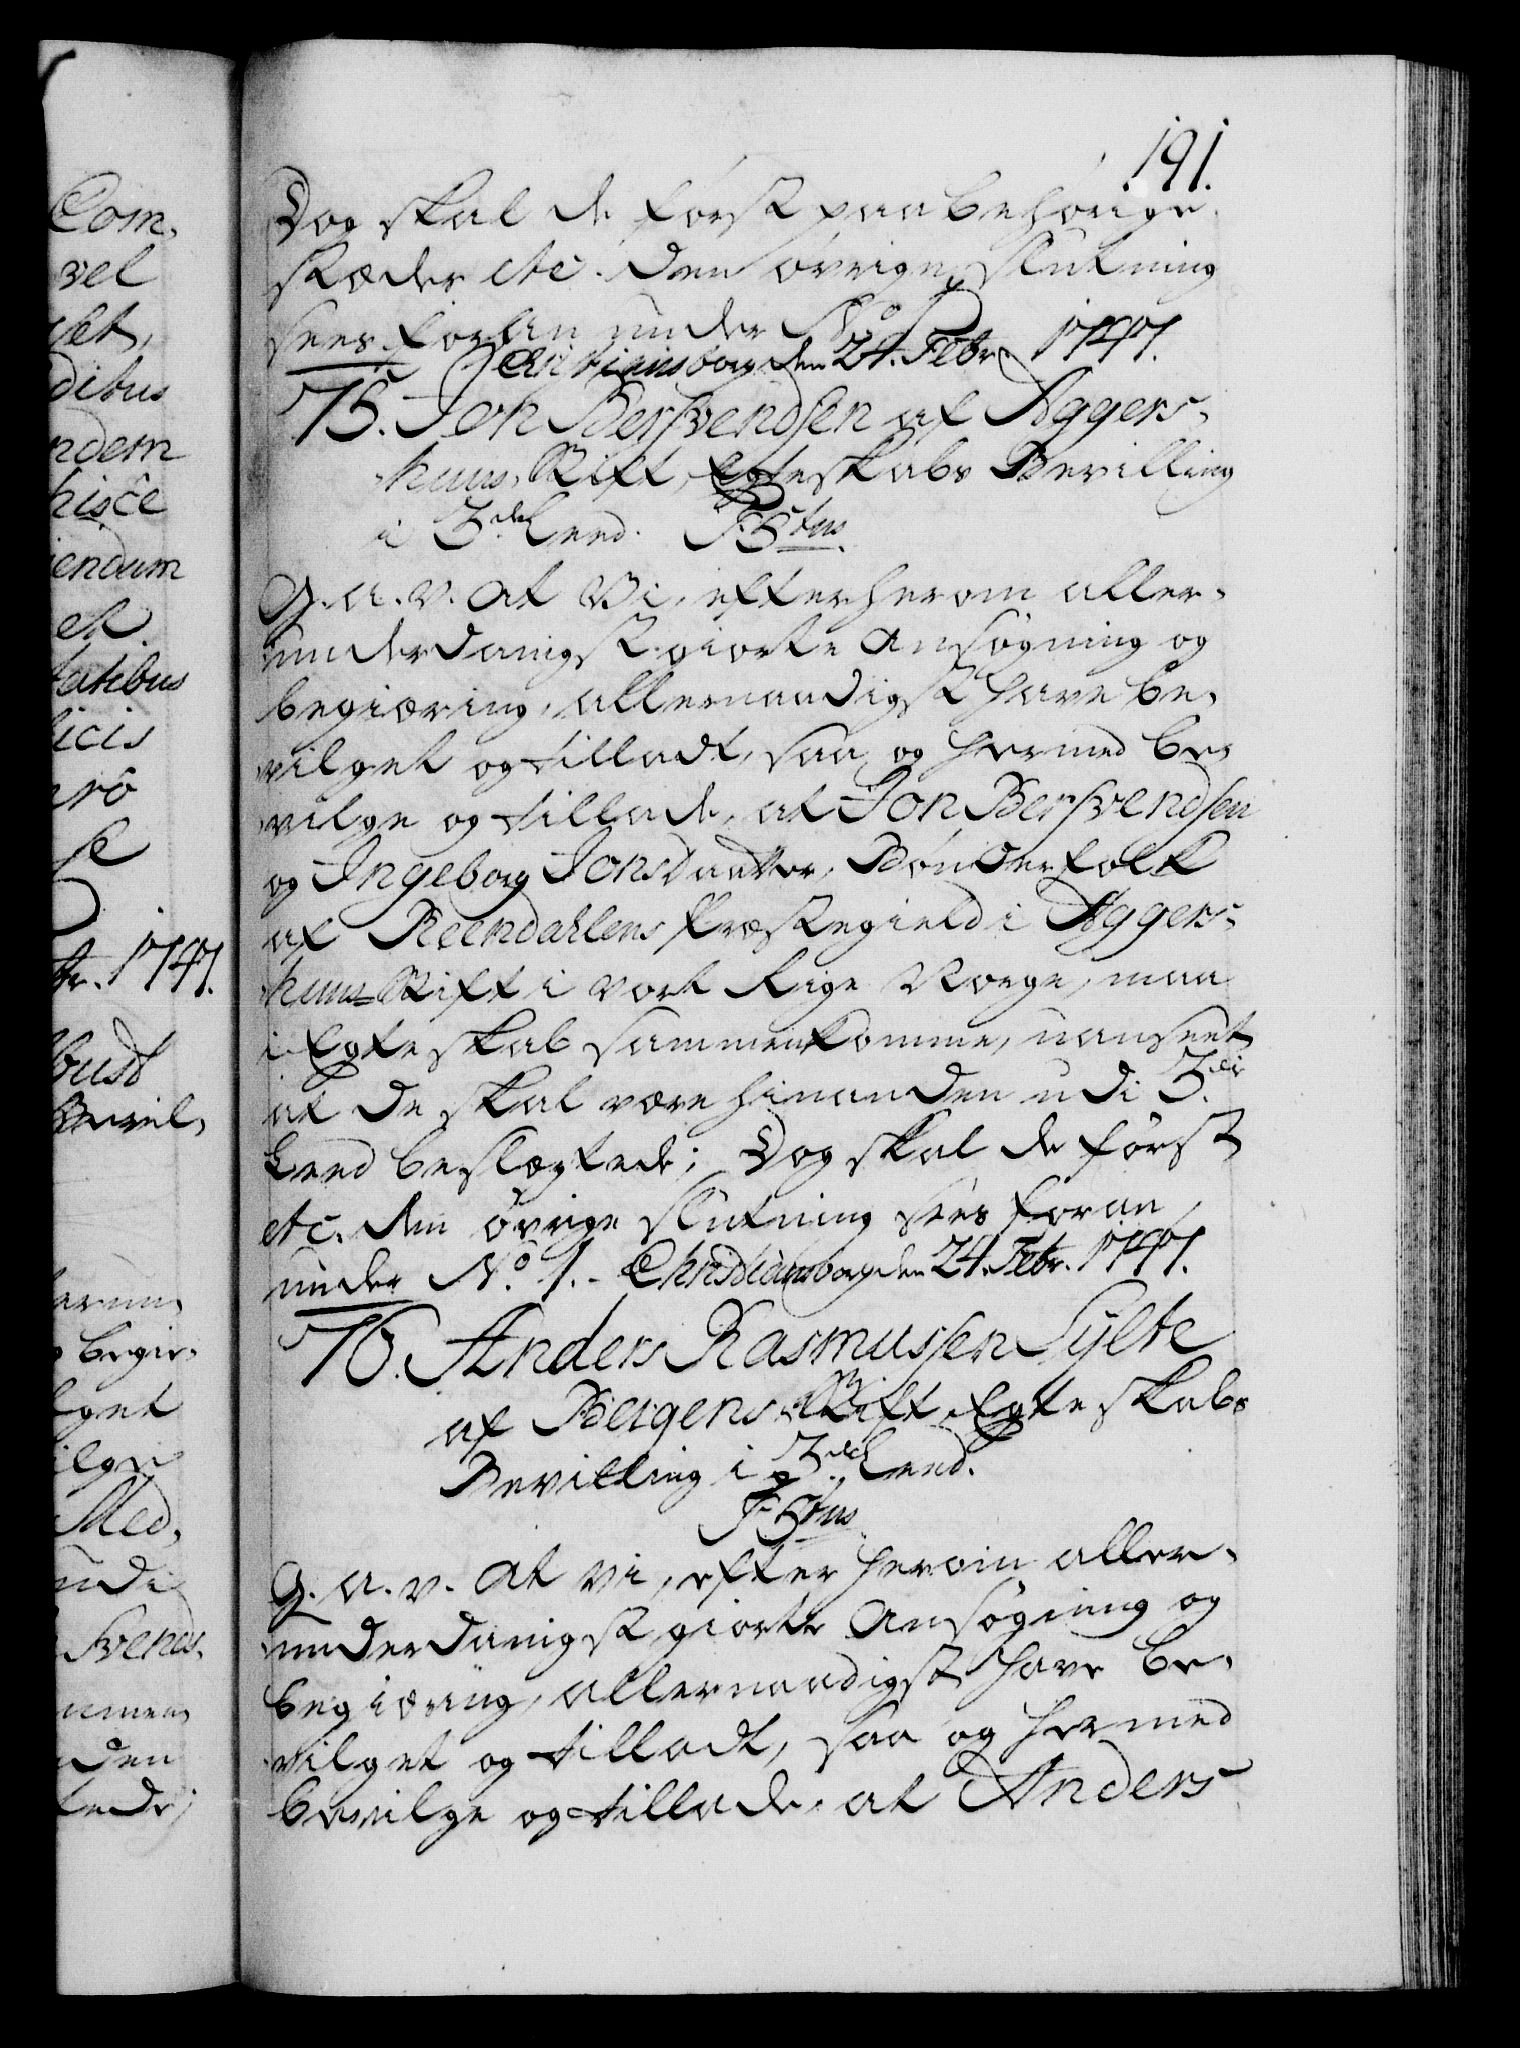 Com,
vel
let,
dibus
ndem
hisce
iendum
et
tatibus
licis
pro
se
br. 1747.
budt
Bevil,
herom,
begie,
lget
ilge
Med,
udi
Svends,
ammen,
den
tede;
191.
Dog skal de först paa behörige
stæder etc. den övrige slutning
sees foran under No 1.
Christiansborg den 24. Febr. 1747.
75. Jon Bersvendsen af Aggers-
huus Stift, Egteskabs Bevilling
i 3de Leed. F5tus
G. A. V. At Vi, efter herom aller-
underdanigst giorte Ansøgning og
begiæring, allernaadigst have be-
vilget og tilladt, saa og hermed be-
vilge og tillade, at Jon Bersvendsen
og Ingeborg Jonsdaatter, Bönderfolk
af Reendahlens Præstegield i Aggers-
huus Stift i Vort Rige Norge, maa
i Egteskab sammenkomme, uanseet
at de skal være hinanden udi 3die
Leed beslægtede; Dog skal de först
etc. den övrige slutning sees foran
under No. 1. Christiansborg den 24. Febr. 1747.
76. Anders Rasmussen Sylte
af Bergens Stift, Egteskabs
Bevilling i 3de Leed.
F5tus
G. A. V. At Vi, efter herom aller-
underdanigst giorte Ansøgning og
begiæring, allernaadigst have be-
vilget og tilladt, saa og hermed
bevilge og tillade, at Anders